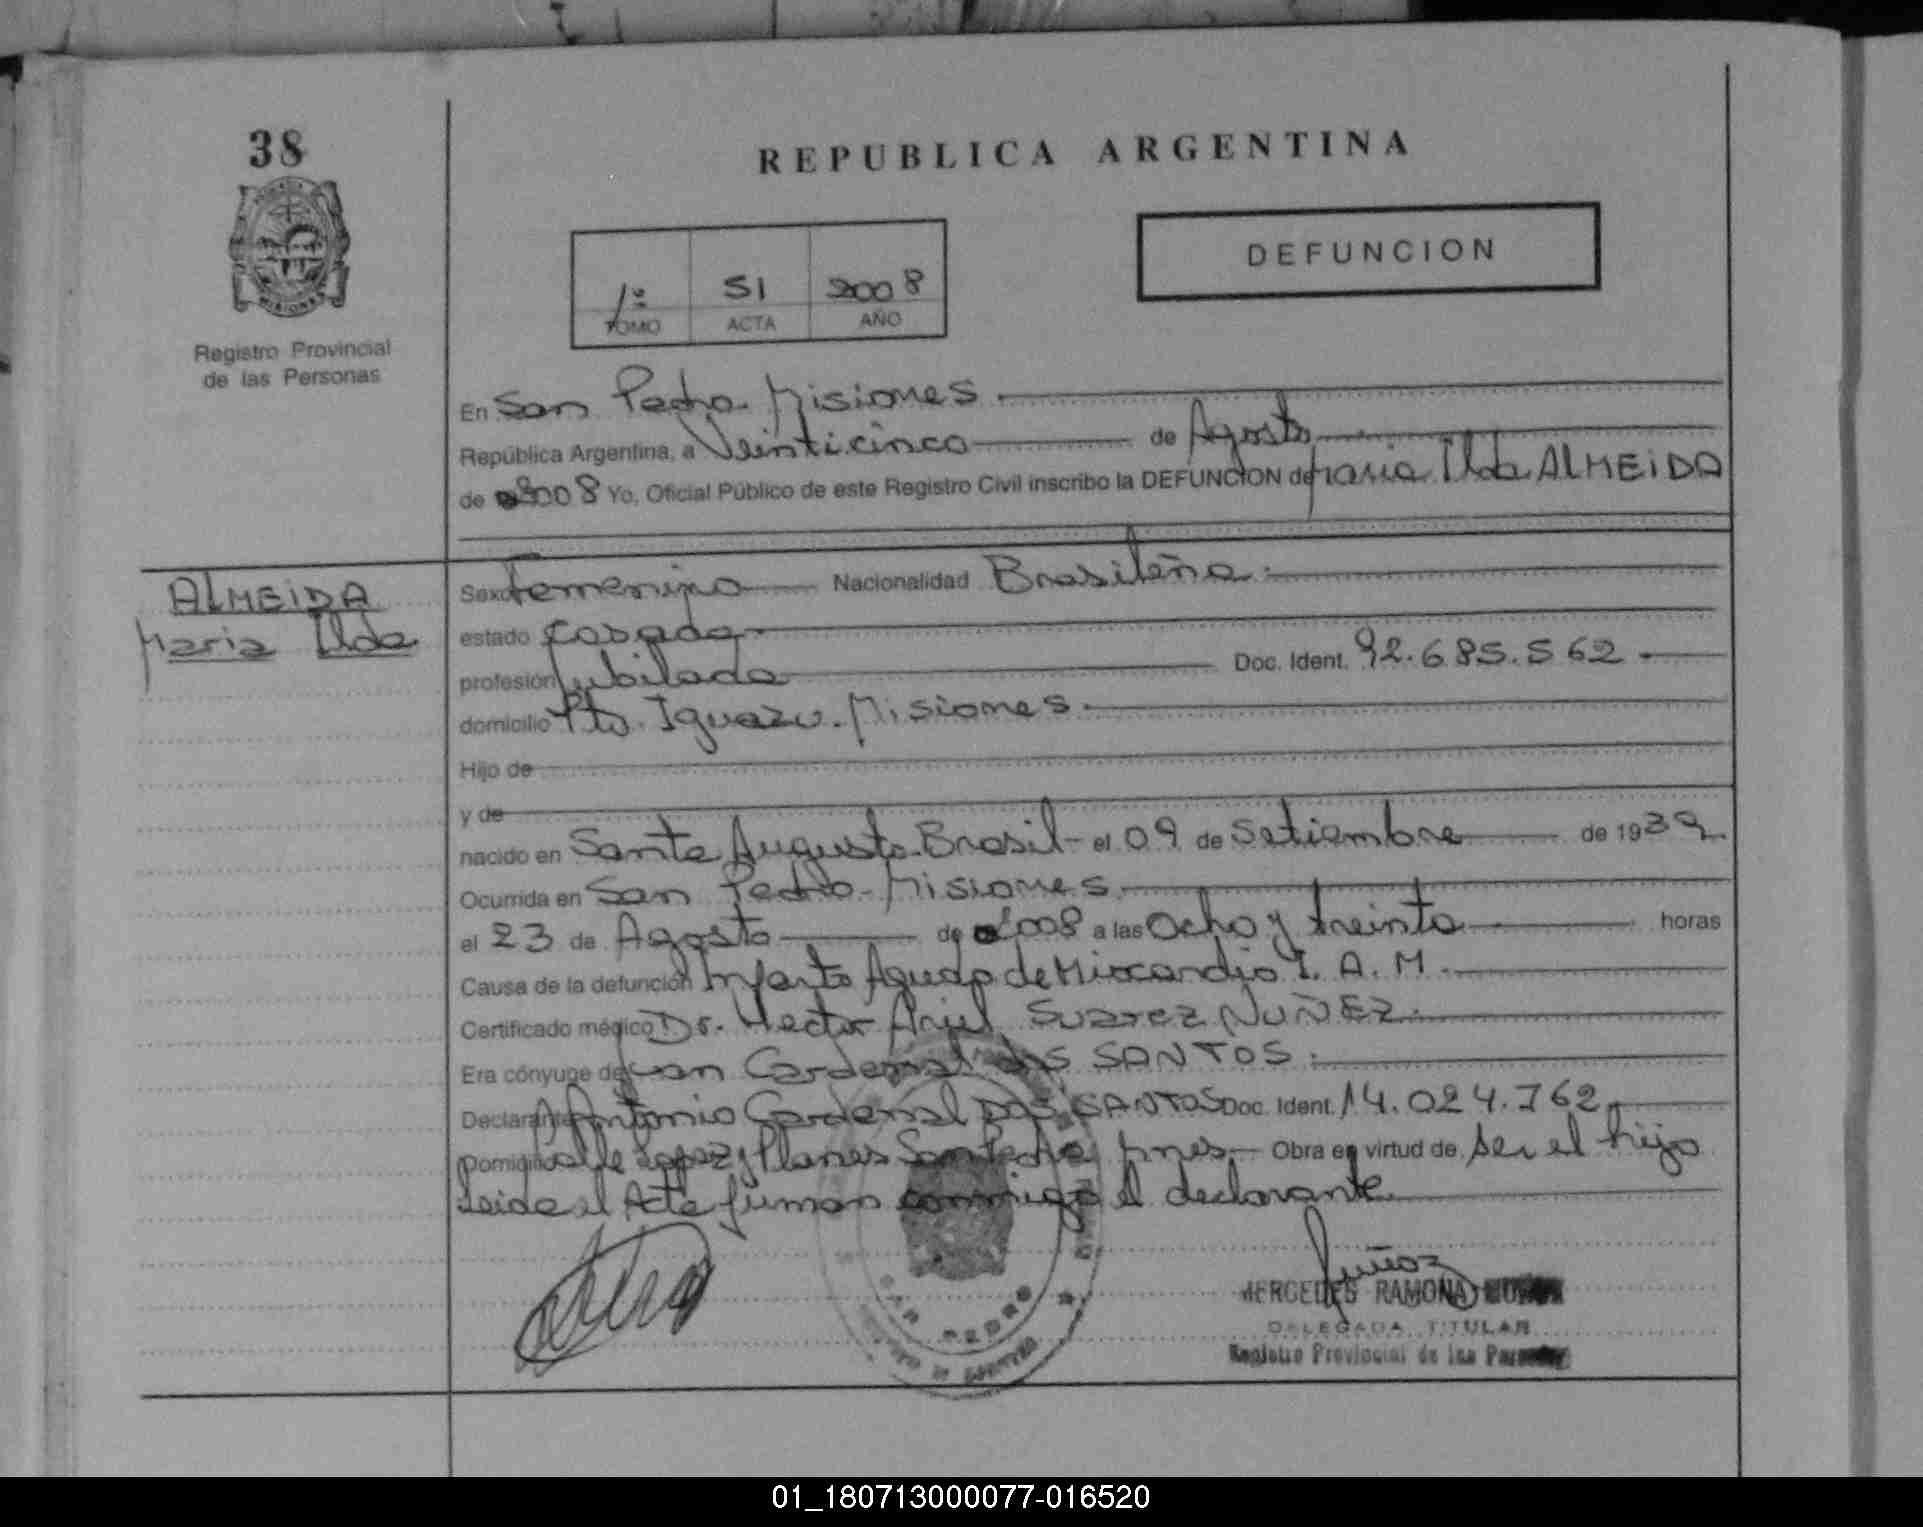 38
REPUBLICA ARGENTINA
DEFUNCION
1º 51 2008
TOMO ACTA AÑO
MISIONES
Registro Provincial
de las Personas
En San Pedro Misiones
República Argentina, a Veinticinco de Agosto
de 2008 Yo, Oficial Público de este Registro Civil inscribo la DEFUNCION de Maria Ilda ALMEIDA
ALMEIDA
Maria Ilda
Sexo Femenino Nacionalidad Brasileña
estado Casada
profesión Jubilada Doc. Ident. 92.685.562
domicilio Pto. Iguazu. Misiones
Hijo de
y de
nacido en Santo Augusto Brasil el 09 de Setiembre de 1939
Ocurrida en San Pedro Misiones
el 23 de Agosto de 2008 a las Ocho y treinta horas
Causa de la defunción Infarto Agudo de Miocardio I.A.M.
Certificado médico Dr. Hector Ariel SUAREZ NUÑEZ
Era cónyuge de Juan Cardenal dos SANTOS
Declarante Antonio Cardenal DOS SANTOS Doc. Ident. 14.024.762
Domicilio calle Lopez y Planes San Pedro Mnes. Obra en virtud de ser el hijo
Leida el Acta firman conmigo el declarante
Muñoz
MERCEDES RAMONA
DELEGADA TITULAR
Registro Provincial de las
SAN PEDRO
01_180713000077-016520